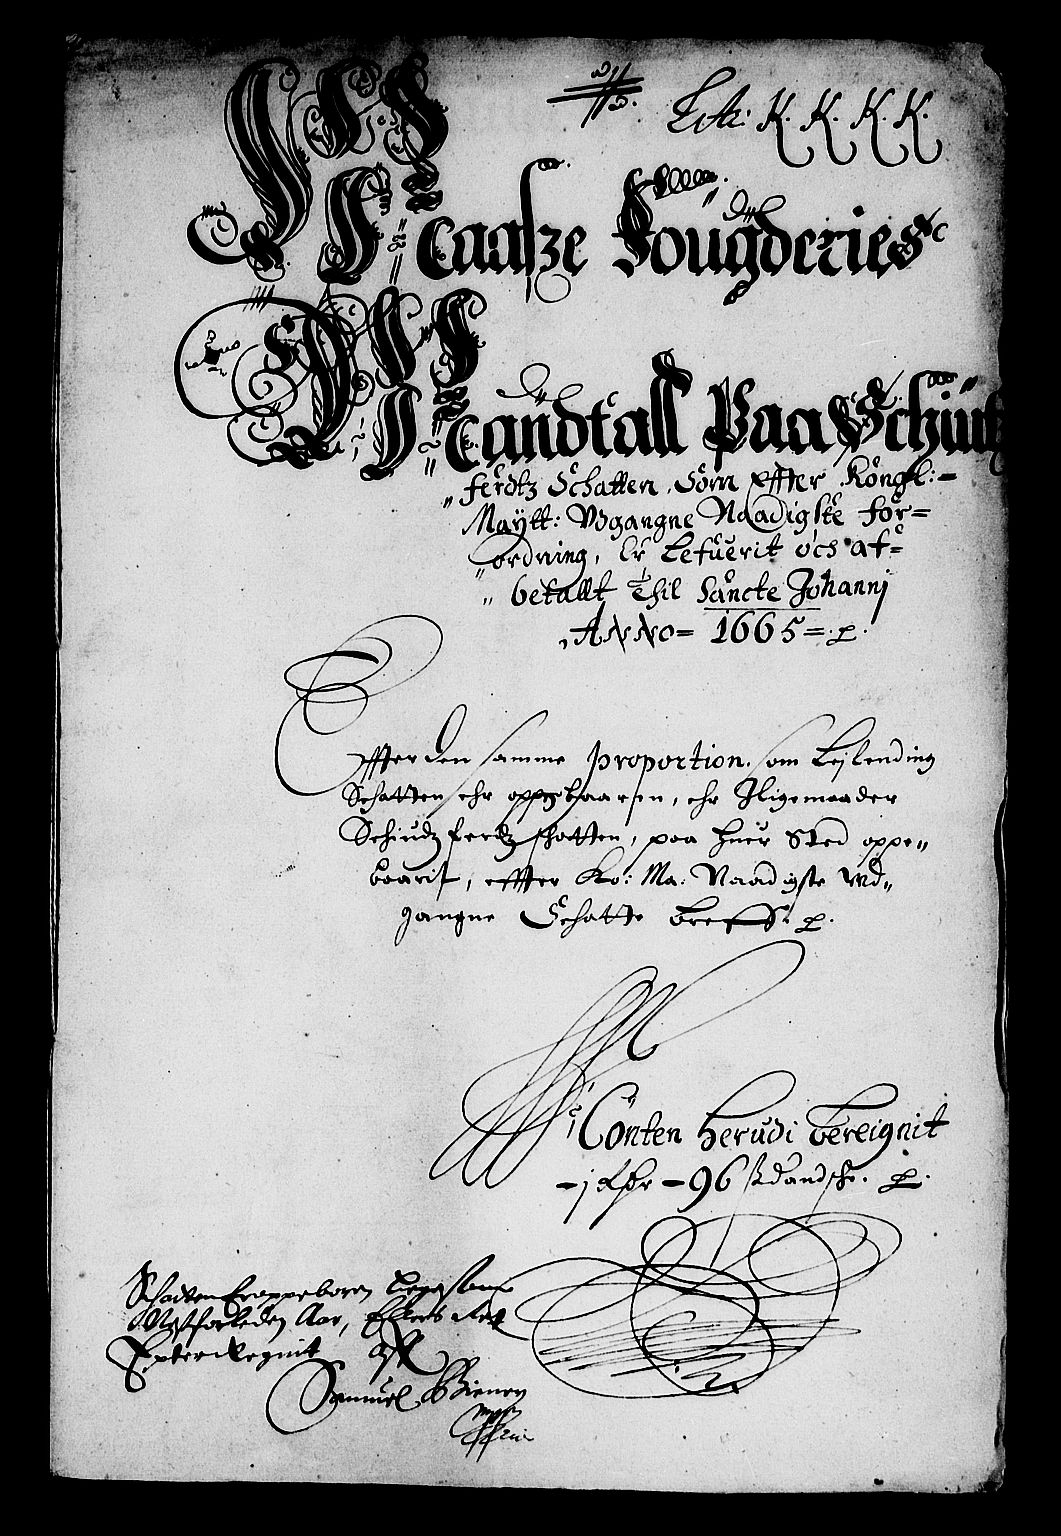 Litr: K. K. K. K.
Raasze Fougderies
Mandtall Paa Schütz
ferdtz Schatten, Som Effter Kongl:
Maytt: Vdgangne Naadigste for=
ordning, Er Lefuerit och af=
betallt Thil Sancte Johannj
ANNO= 1665=
Effter den samme proportion. som Lejlending
Schatten ehr oppebaaren, ehr Iligemaader
Schiudz ferdz schatten, paa huer Sted oppe„
baarit, effter Ko: Ma: Naadigste Vd„
gangne Schatte breff.
Conten herudi bereignit
96
Schatten er oppeboren
Aar,
Samuel